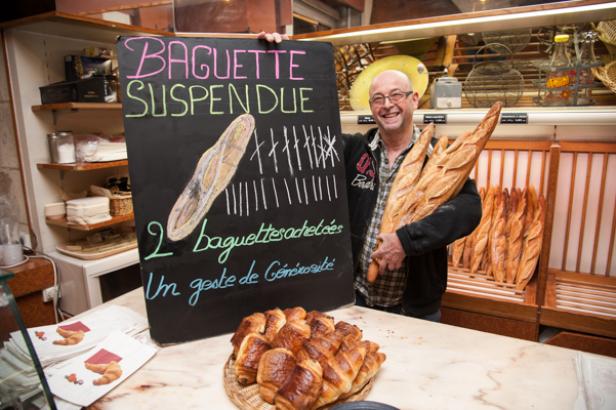 BAGUETTE
SUSPENDUE
2 baguettes achetées
Un geste de Générosité